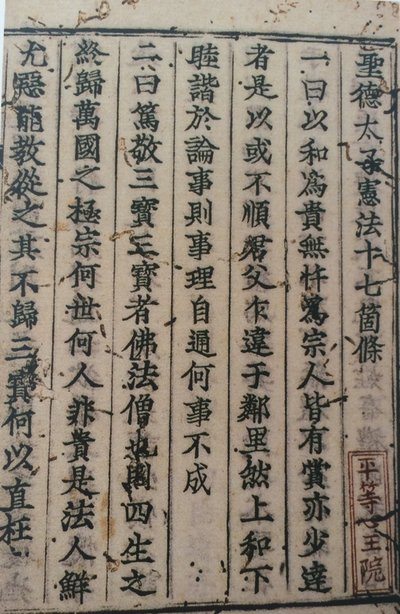 聖德太子憲法十七箇條
一曰以和爲貴無忤爲宗人皆有賞亦少達
者是以或不順君父乍違于鄰里然上和下
睦諧於論事則事理自通何事不成
二曰篤敬三寶三寶者佛法僧也則四生之
終歸萬國之極宗何世何人非貴是法人鮮
尤惡能教從之其不歸三寶何以直枉
平等心王院